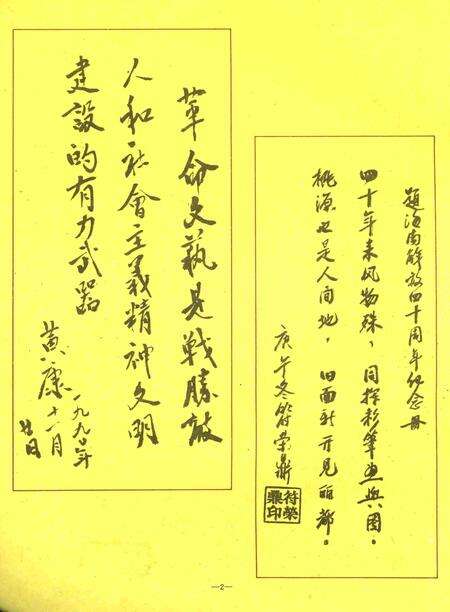 題海南解放四十周年纪念册
四十年来风物殊，同挥彩筆画舆图。
桃源也是人间地，旧面新开見丽都。
庚午冬符荣鼎
符榮鼎印
革命文藝是戰勝敵
人和社會主義精神文明
建設的有力武器
黄康
一九九〇年
十一月
廿日
—2—